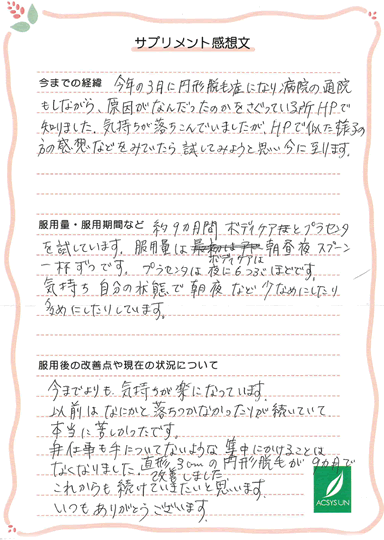 サプリメント感想文
今までの経緯 今年の3月に円形脱毛症になり病院の通院
もしながら、原因がなんだったのかをさぐっている所HPで
知りました。気持ちが落ちこんでいましたが、HPで似た様子の
方の感想などをみていたら試してみようと思い今に至ります。
服用量・服用期間など 約9カ月間 ボディケア とプラセンタ
を試しています。服用量は 朝昼夜 スプーン
ボディケアは
一杯ずつです。プラセンタは 夜に6つぶほどです。
気持ち 自分の状態で朝夜など少なめにしたり
多めにしたりしています。
服用後の改善点や現在の状況について
今までよりも気持ちが楽になっています。
以前はなにかと落ちつかなかったりが続いていて
本当に苦しかったです。
仕事も手についてないような集中にかけることは
なくなりました。直形3cmの円形脱毛が9カ月で
改善しました。
これからも続けていきたいと思います。
いつもありがとうございます。
ACSYSUN